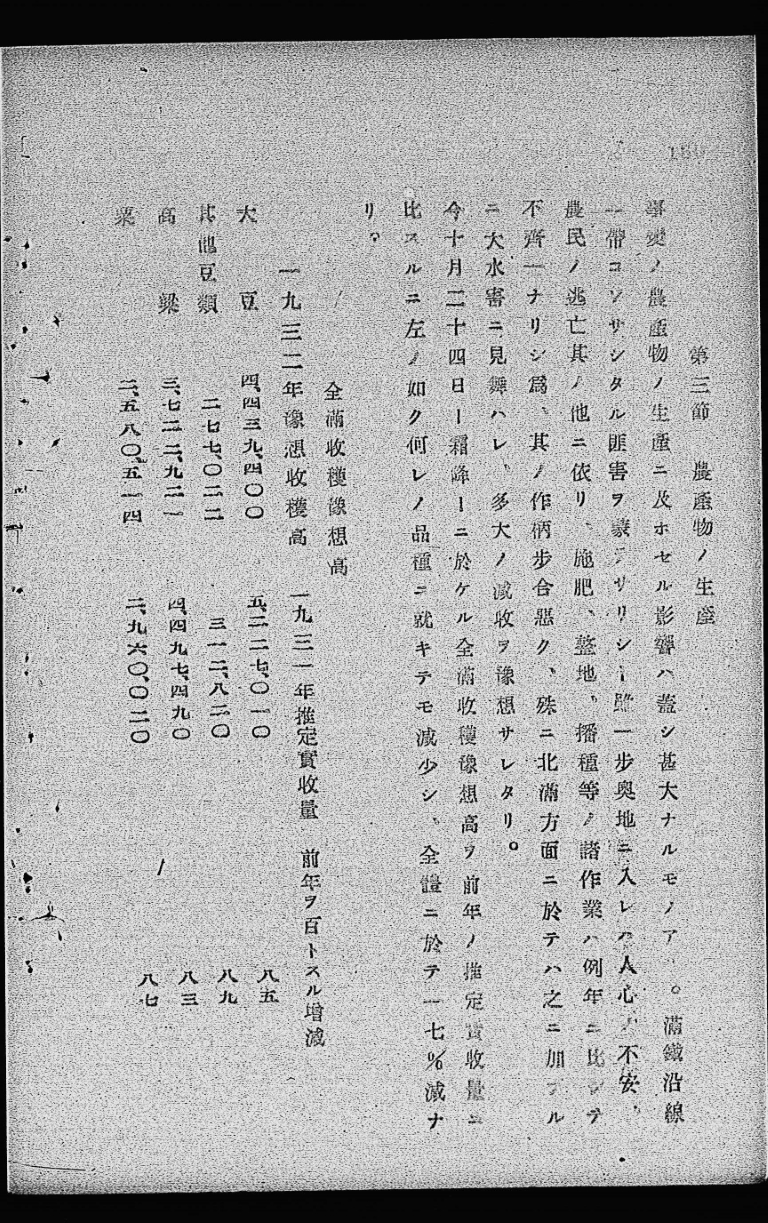 第三節　農產物ノ生產
事變ノ農產物ノ生產ニ及ホセル影響ハ蓋シ甚大ナルモノア　。滿鐵沿線
一帶コソサシタル匪害ヲ蒙ラサリシト雖一步奧地ニ入レハ人心ノ不安、
農民ノ逃亡其ノ他ニ依リ、施肥、整地、播種等ノ諸作業ハ例年ニ比シテ
不齊一ナリシ爲、其ノ作柄步合惡ク、殊ニ北滿方面ニ於テハ之ニ加フル
ニ大水害ニ見舞ハレ、多大ノ減收ヲ豫想サレタリ。
今十月二十四日ー霜降ーニ於ケル全滿收穫豫想高ヲ前年ノ推定實收量ニ
比スルニ左ノ如ク何レノ品種ニ就キテモ減少シ、全體ニ於テ一七％減ナ
リ。
全滿收穫豫想高
一九三二年豫想收穫高　一九三一年推定實收量　前年ヲ百トスル增減
大豆　四、四三九、四〇〇　五、二二七、〇一〇　八五
其他豆類　二七七、〇二二　三一二、八二〇　八九
高粱　三、七二二、九二一　四、四九七、四九〇　八三
粟　二、五八〇、五一四　二、九六〇、〇二〇　八七